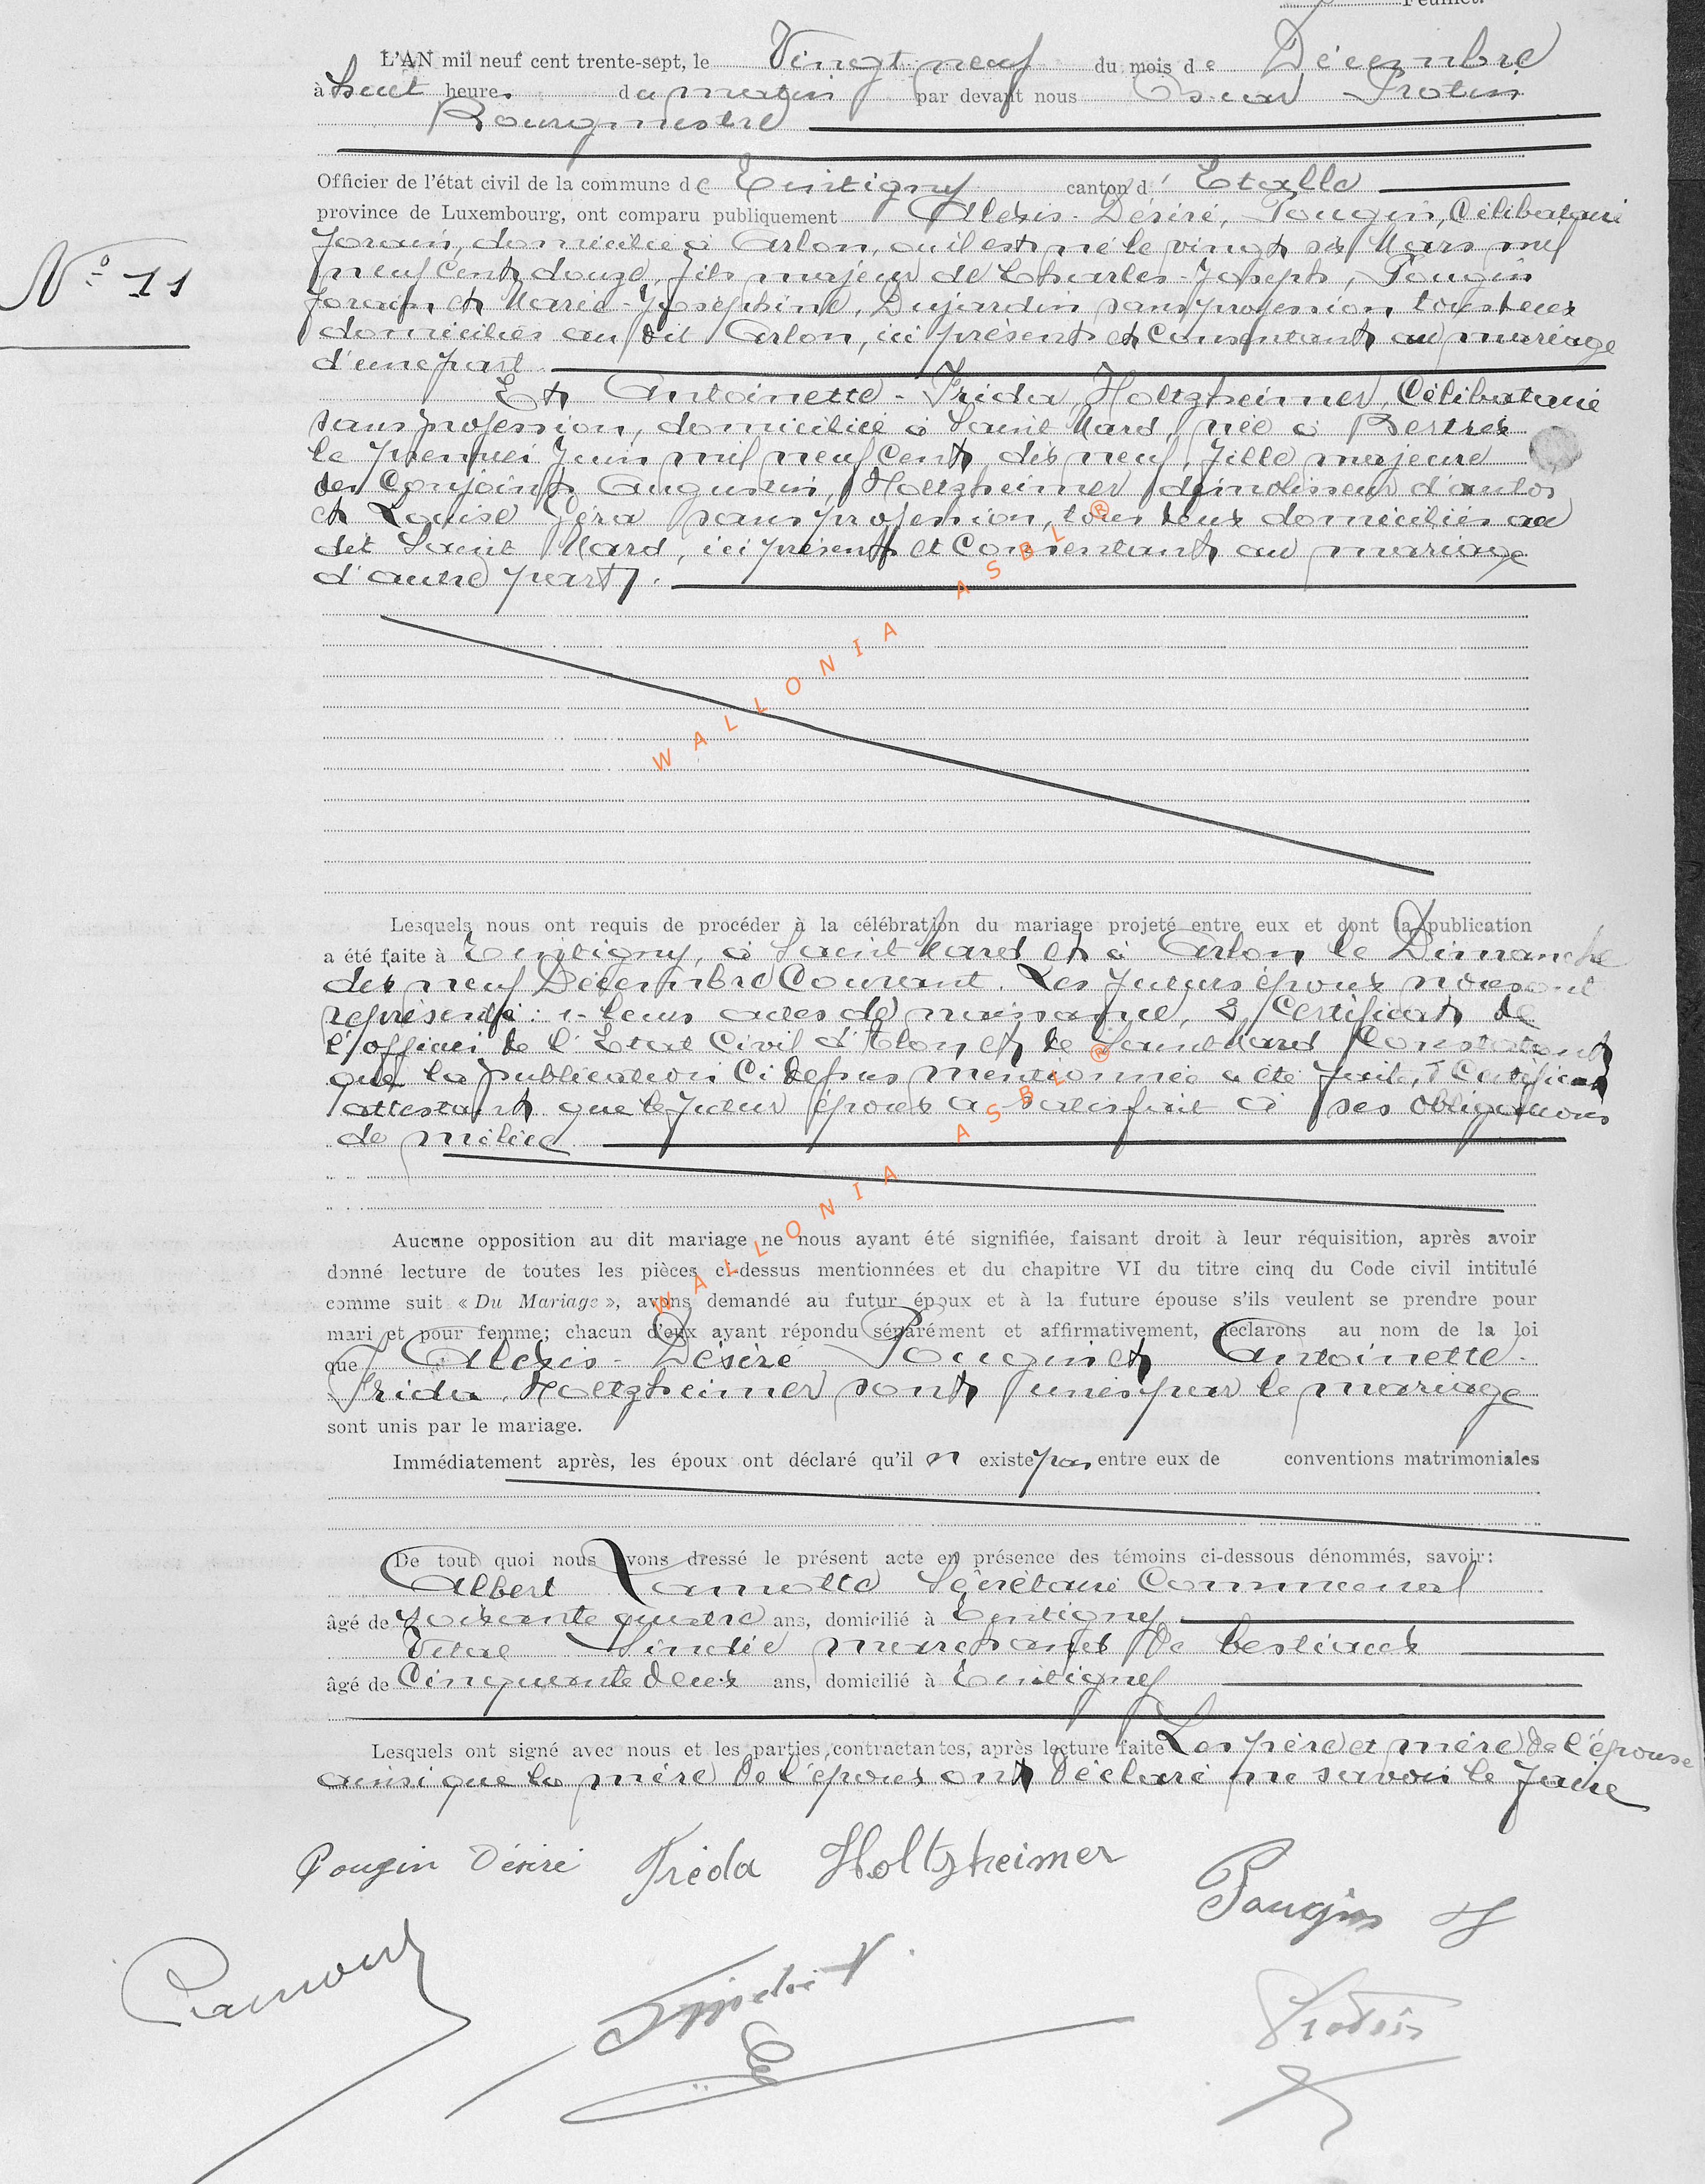 Feuillet.
L'AN mil neuf cent trente-sept, le Vingt neuf du mois de Décembre
à huit heures du matin par devant nous Oscar Protin
Bourgmestre
Officier de l'état civil de la commune de Tintigny canton d' Etalle
province de Luxembourg, ont comparu publiquement Alexis-Désiré, Pougin, Célibataire
N° 11
forain, domicilié à Arlon, où il est né le vingt six Mars mil
neuf cent douze, fils majeur de Charles-Joseph, Pougin
forain et Marie-Joséphine, Dujardin sans profession tous deux
domiciliés au dit Arlon, ici présents et consentants au mariage
d'une part
Et Antoinette-Frida, Holtzheimer, Célibataire
sans profession, domiciliée à Saint Mard, née à Bertrix
le premier Juin mil neuf cent dix neuf, fille majeure
des Conjoints Augustin, Holtzheimer démolisseur d'autos
et Louise Géra sans profession, tous deux domiciliés au
dit Saint Mard, ici présents et consentants au mariage
d'autre part.
WALLONIA ASBL ®
Lesquels nous ont requis de procéder à la célébration du mariage projeté entre eux et dont la publication
a été faite à Tintigny, à Saint Mard et à Arlon le Dimanche
dix neuf Décembre Courant. Les futurs époux nous ont
représenté : 1- leurs actes de naissance, 2, Certificats de
l'officier de l'Etat Civil d'Arlon et de Saint Mard Constatant
que la publication Ci depus mentionnée a été faite, Certificat
attestant que le futur époux a satisfait à ses obligations
de milice
WALLONIA ASBL ®
Aucune opposition au dit mariage ne nous ayant été signifiée, faisant droit à leur réquisition, après avoir
donné lecture de toutes les pièces ci-dessus mentionnées et du chapitre VI du titre cinq du Code civil intitulé
comme suit « Du Mariage », avons demandé au futur époux et à la future épouse s'ils veulent se prendre pour
mari et pour femme; chacun d'eux ayant répondu séparément et affirmativement, declarons au nom de la loi
que Alexis-Désiré Pougin et Antoinette-
Frida, Holtzheimer sont unis par le mariage
sont unis par le mariage.
Immédiatement après, les époux ont déclaré qu'il n existe pas entre eux de conventions matrimoniales
De tout quoi nous avons dressé le présent acte en présence des témoins ci-dessous dénommés, savoir:
Albert Lamotte Secrétaire Communal
âgé de soixante quatre ans, domicilié à Tintigny
Vital Sindic marchand de bestiaux
âgé de Cinquante deux ans, domicilié à Tintigny
Lesquels ont signé avec nous et les parties contractantes, après lecture faite Les père et mère de l'épouse
ainsi que la mère de l'époux ont déclaré ne savoir le faire
Pougin Désiré Frèda Holtzheimer Pougin
Protin